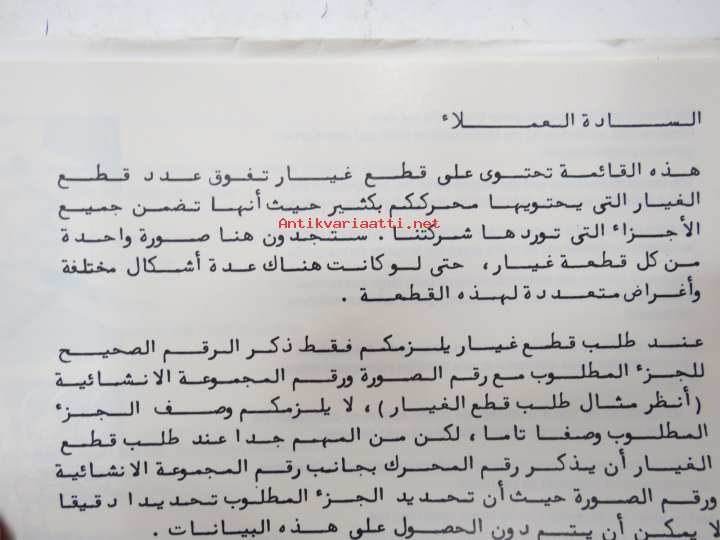 السادة العملاء
هذه القائمة تحتوى على قطع غيار تفوق عدد قطع
الغيار التى يحتويها محرككم بكثير حيث أنها تضمن جميع
Antikvariaatti.net
الأجزاء التى توردها شركتنا. ستجدون هنا صورة واحدة
من كل قطعة غيار، حتى لو كانت هناك عدة أشكال مختلفة
وأغراض متعددة لهذه القطعة .
عند طلب قطع غيار يلزمكم فقط ذكر الرقم الصحيح
للجزء المطلوب مع رقم الصورة ورقم المجموعة الانشائية
(أنظر مثال طلب قطع الغيار)، لا يلزمكم وصف الجزء
المطلوب وصفا تاما، لكن من المهم جدا عند طلب قطع
الغيار أن يذكر رقم المحرك بجانب رقم المجموعة الانشائية
ورقم الصورة حيث أن تحديد الجزء المطلوب تحديدا دقيقا
لا يمكن أن يتم دون الحصول على هذه البيانات .